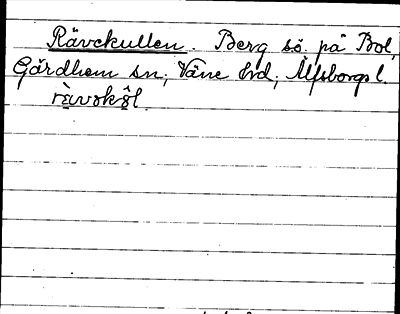 Rävekullen. Berg sö. på Bol,
Gärdhem sn; Väne hd; Älfsborgs l.